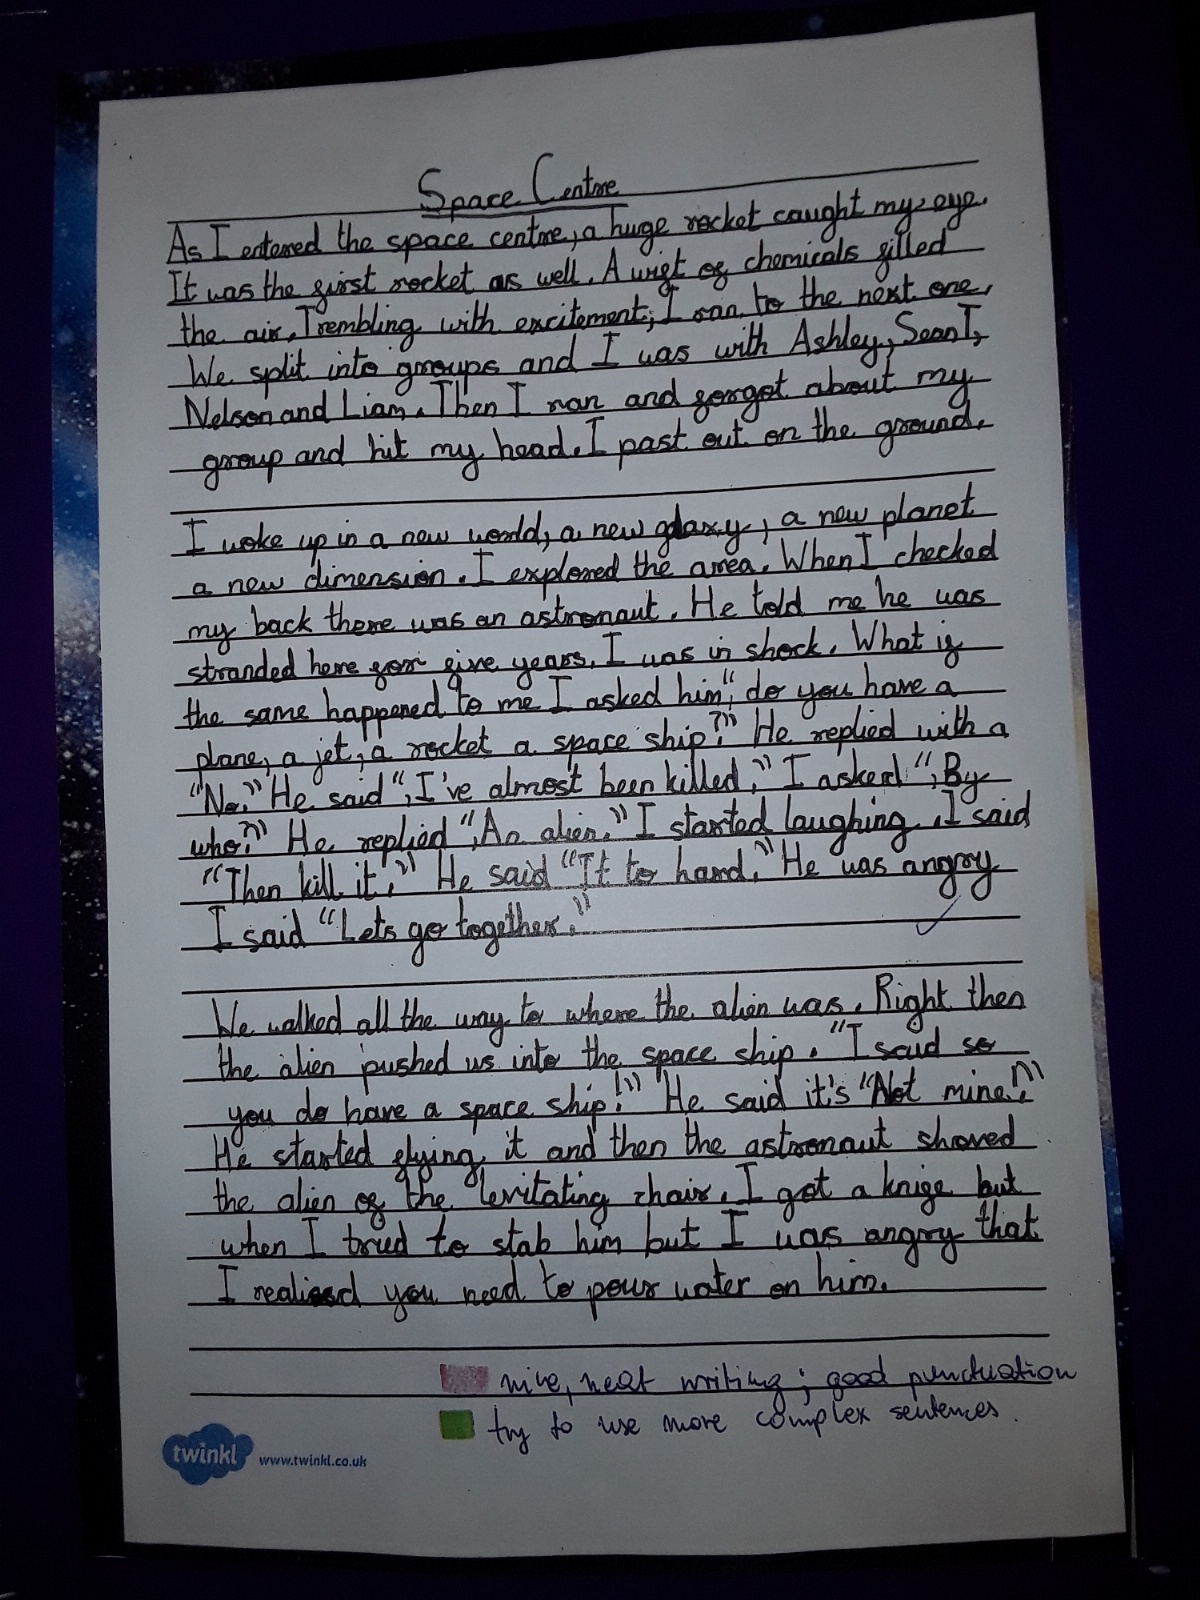 Space Centre
As I entered the space centre, a huge rocket caught my eye.
It was the first rocket as well. A wift of chemicals filled
the air. Trembling with excitement, I ran to the next one.
We split into groups and I was with Ashley, Sean I,
Nelson and Liam. Then I ran and forgot about my
group and hit my head. I past out on the ground.
I woke up in a new world, a new glaxy, a new planet
a new dimension. I explored the area. When I checked
my back there was an astronaut. He told me he was
stranded here for five years. I was in shock. What if
the same happened to me I asked him", do you have a
plane, a jet, a rocket a space ship?" He replied with a
"No." He said", I've almost been killed." I asked ", By
who?" He replied ", An alien." I started laughing. I said
"Then kill it." He said "It to hard." He was angry
I said "Lets go together."
We walked all the way to where the alien was. Right then
the alien pushed us into the space ship. "I said so
you do have a space ship!" He said it's "Not mine!"
He started flying it and then the astronaut shoved
the alien of the levitating chair. I got a knife but
when I tried to stab him but I was angry that
I realised you need to pour water on him.
nice, neat writing; good punctuation
try to use more complex sentences.
twinkl www.twinkl.co.uk